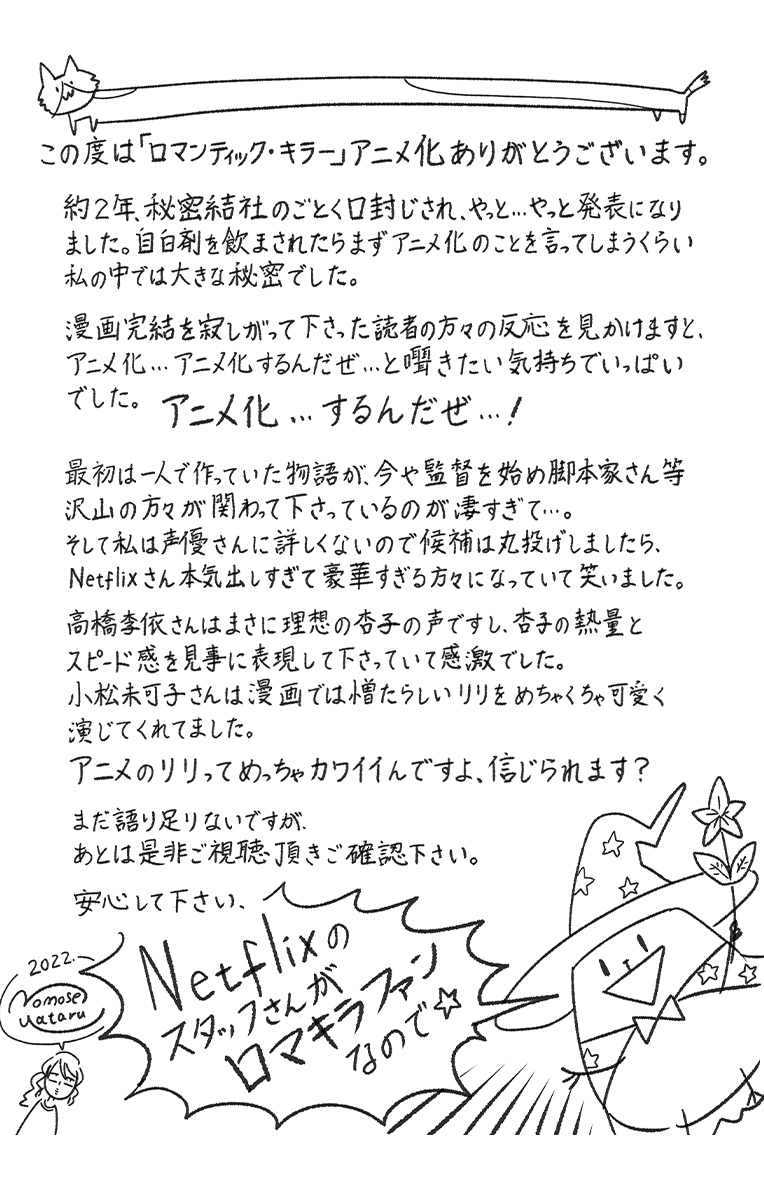 この度は「ロマンティック・キラー」アニメ化ありがとうございます。
約2年、秘密結社のごとく口封じされ、やっと…やっと発表になり
ました。自白剤を飲まされたらまずアニメ化のことを言ってしまうくらい
私の中では大きな秘密でした。
漫画完結を寂しがって下さった読者の方々の反応を見かけますと、
アニメ化…アニメ化するんだぜ…と囁きたい気持ちでいっぱい
でした。 アニメ化…するんだぜ…!
最初は一人で作っていた物語が、今や監督を始め脚本家さん等
沢山の方々が関わって下さっているのが凄すぎて…。
そして私は声優さんに詳しくないので候補は丸投げしましたら、
Netflixさん本気出しすぎて豪華すぎる方々になっていて笑いました。
高橋李依さんはまさに理想の杏子の声ですし、杏子の熱量と
スピード感を見事に表現して下さっていて感激でした。
小松未可子さんは漫画では憎たらしいリリをめちゃくちゃ可愛く
演じてくれてました。
アニメのリリってめっちゃカワイイんですよ、信じられます?
まだ語り足りないですが、
あとは是非ご視聴頂きご確認下さい。
安心して下さい、
Netflixの
スタッフさんが
ロマキラファン
なので☆
2022.
Momose
Wataru